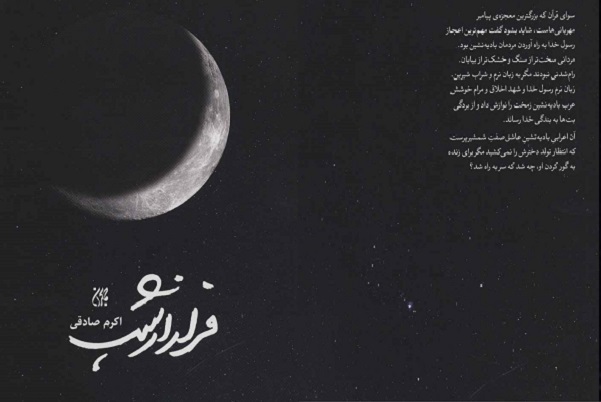 سوای قرآن که بزرگترین معجزه‌ی پیامبر
مهربانی‌هاست، شاید بشود گفت مهم‌ترین اعجاز
رسول خدا به راه آوردن مردمان بادیه‌نشین بود.
مردانی سخت‌تر از سنگ و خشک‌تر از بیابان.
رام‌شدنی نبودند مگر به زبان نرم و شراب شیرین.
زبان نرم رسول خدا و شهد اخلاق و مرام خوشش
عرب بادیه‌نشین زمخت را نوازش داد و از بردگی
بت‌ها به بندگی خدا رساند.
آن اعرابی بادیه‌نشین عاشق‌صفتِ شمشیرپرست
که انتظار تولد دخترش را نمی‌کشید مگر برای زنده
به گور کردن او، چه شد که سر به راه شد؟
فرار از شب
اکرم صادقی